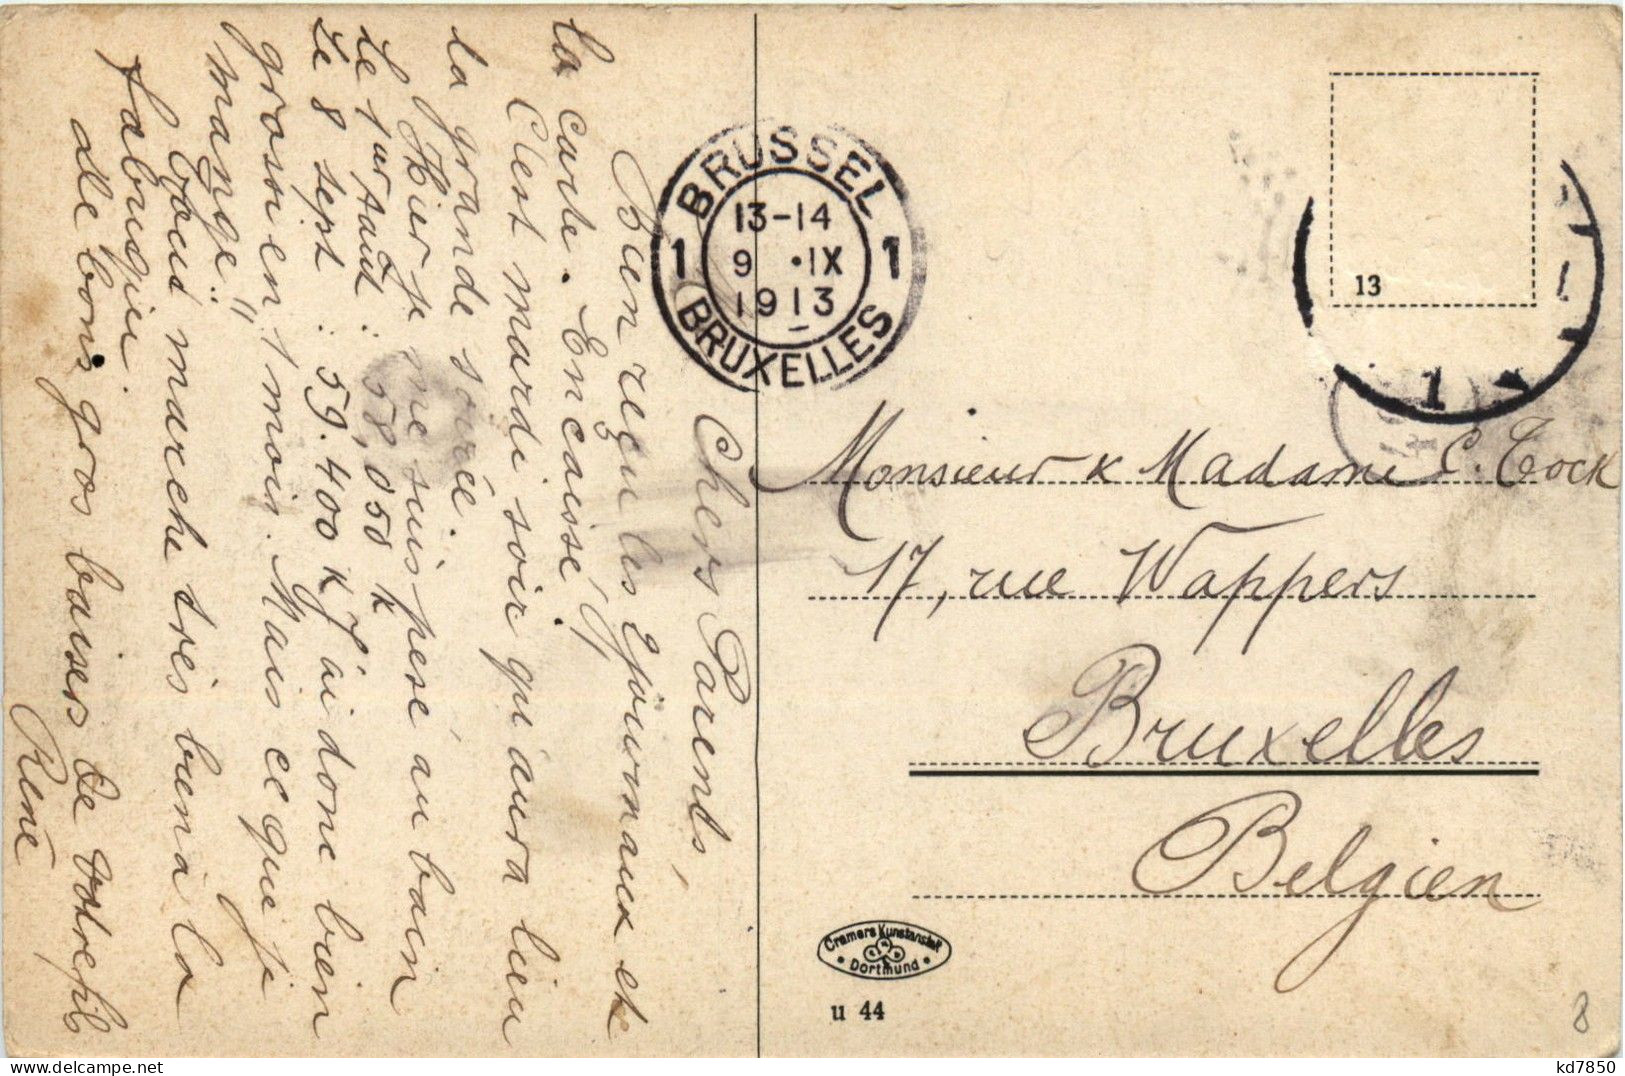 Chers Parents,
Bien reçu les journaux et
la carte. Encaissé!
C'est mardi soir qu'aura lieu
la grande soirée.
Hier je me suis pesé au bain
Le 1er août : 58,050 k
Le 8 sept : 59.400 k J'ai donc bien
grossi en 1 mois. Mais ce que je
mange"!!
Tout marche très bien à la
fabrique.
De bons gros baisers de votre fils
René
BRUSSEL
13-14
1 9 •IX 1
1913
BRUXELLES
13
1
Monsieur & Madame C. Tock
17, rue Wappers
Bruxelles
Belgien
Cramers Kunstanstalt
• Dortmund •
u 44
8
kd7850